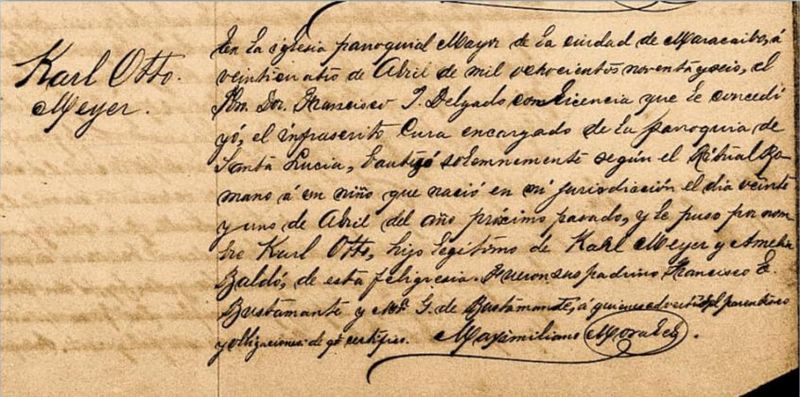 Karl Otto.
Meyer.
En la iglesia parroquial Mayor de la ciudad de Maracaibo, á
veinticuatro de Abril de mil ochocientos noventa y seis, el
Pbro. Dor. Francisco J. Delgado con licencia que le concedí
yó, el infrascrito Cura encargado de la parroquia de
Santa Lucia, bautizó solemnemente según el Ritual Ro-
mano á un niño que nació en mi jurisdicción el dia veinte
y uno de Abril del año próximo pasado, y le puso por nom
bre Karl Otto, hijo legítimo de Karl Meyer y Amelia
Baldó, de esta feligresia. Fueron sus padrino Francisco E.
Bustamante y G. de Bustamante, á quienes advertí el parentesco
y obligaciones: de qe certifico. Maximiliano Morales.